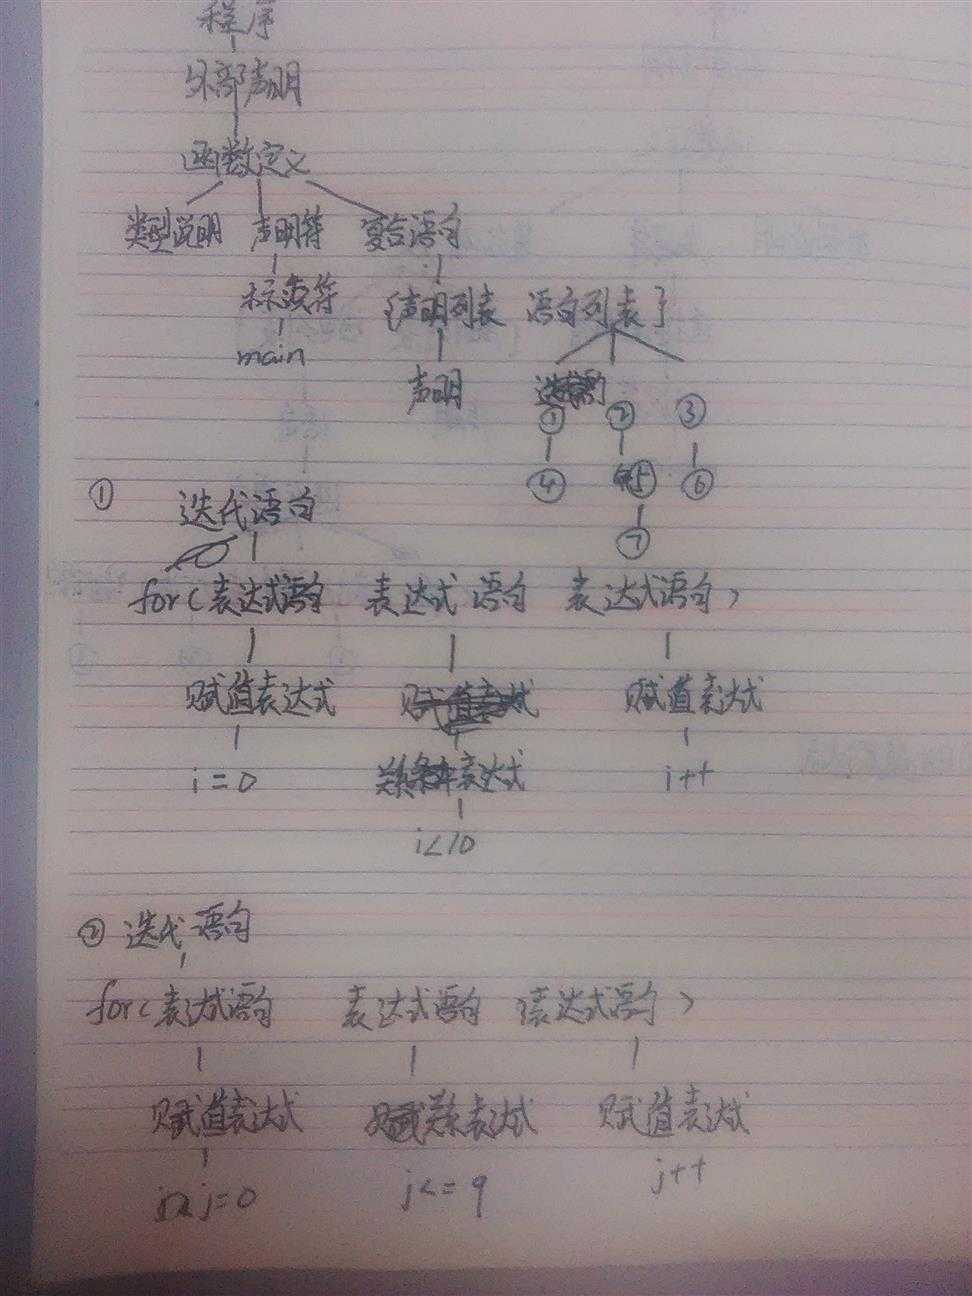 程序
外部声明
函数定义
类型说明 声明符 复合语句
标识符 {声明列表 语句列表}
main
声明
① ② ③
④ ⑤ ⑥
⑦
① 迭代语句
for(表达式语句 表达式语句 表达式语句)
赋值表达式 赋值表达式
i=0 关系表达式 i++
i<10
② 迭代语句
for(表达式语句 表达式语句 表达式语句)
赋值表达式 关系表达式 赋值表达式
j=0 j<=9 j++